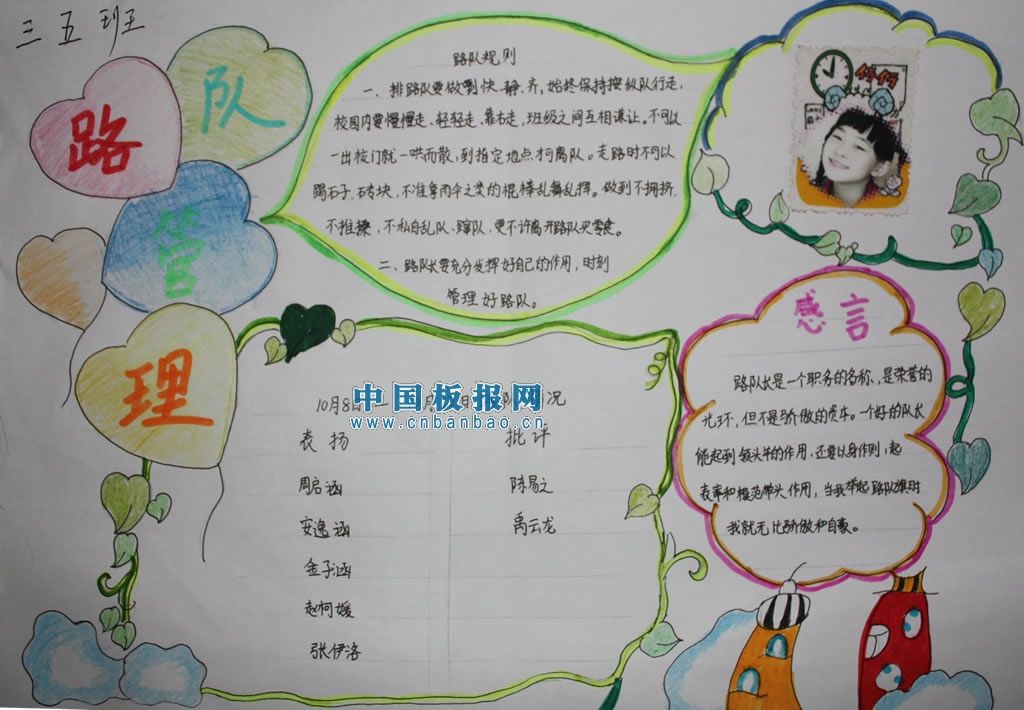 三五班
路队管理
路队规则
一、排路队要做到快、静、齐,始终保持按纵队行走,
校园内要慢慢走、轻轻走、靠右走,班级之间互相谦让。不可以
一出校门就一哄而散,到指定地点才可离队。走路时不可以
踢石子、砖块,不准拿雨伞之类的棍棒乱舞乱挥。做到不拥挤,
不推搡,不私自乱队、蹿队,更不许离开路队买零食。
二、路队长要充分发挥好自己的作用,时刻
管理好路队。
感言
路队长是一个职务的名称,是荣誉的
光环,但不是骄傲的资本。一个好的队长
能起到领头羊的作用,还要以身作则,起
表率和模范带头作用,当我举起路队旗时
我就无比骄傲和自豪。
10月8日
况
中国板报网
www.cnbanbao.cn
表扬 批评
周启涵 陈易之
安逸涵 禹云龙
金子涵
赵柯媛
张伊洛